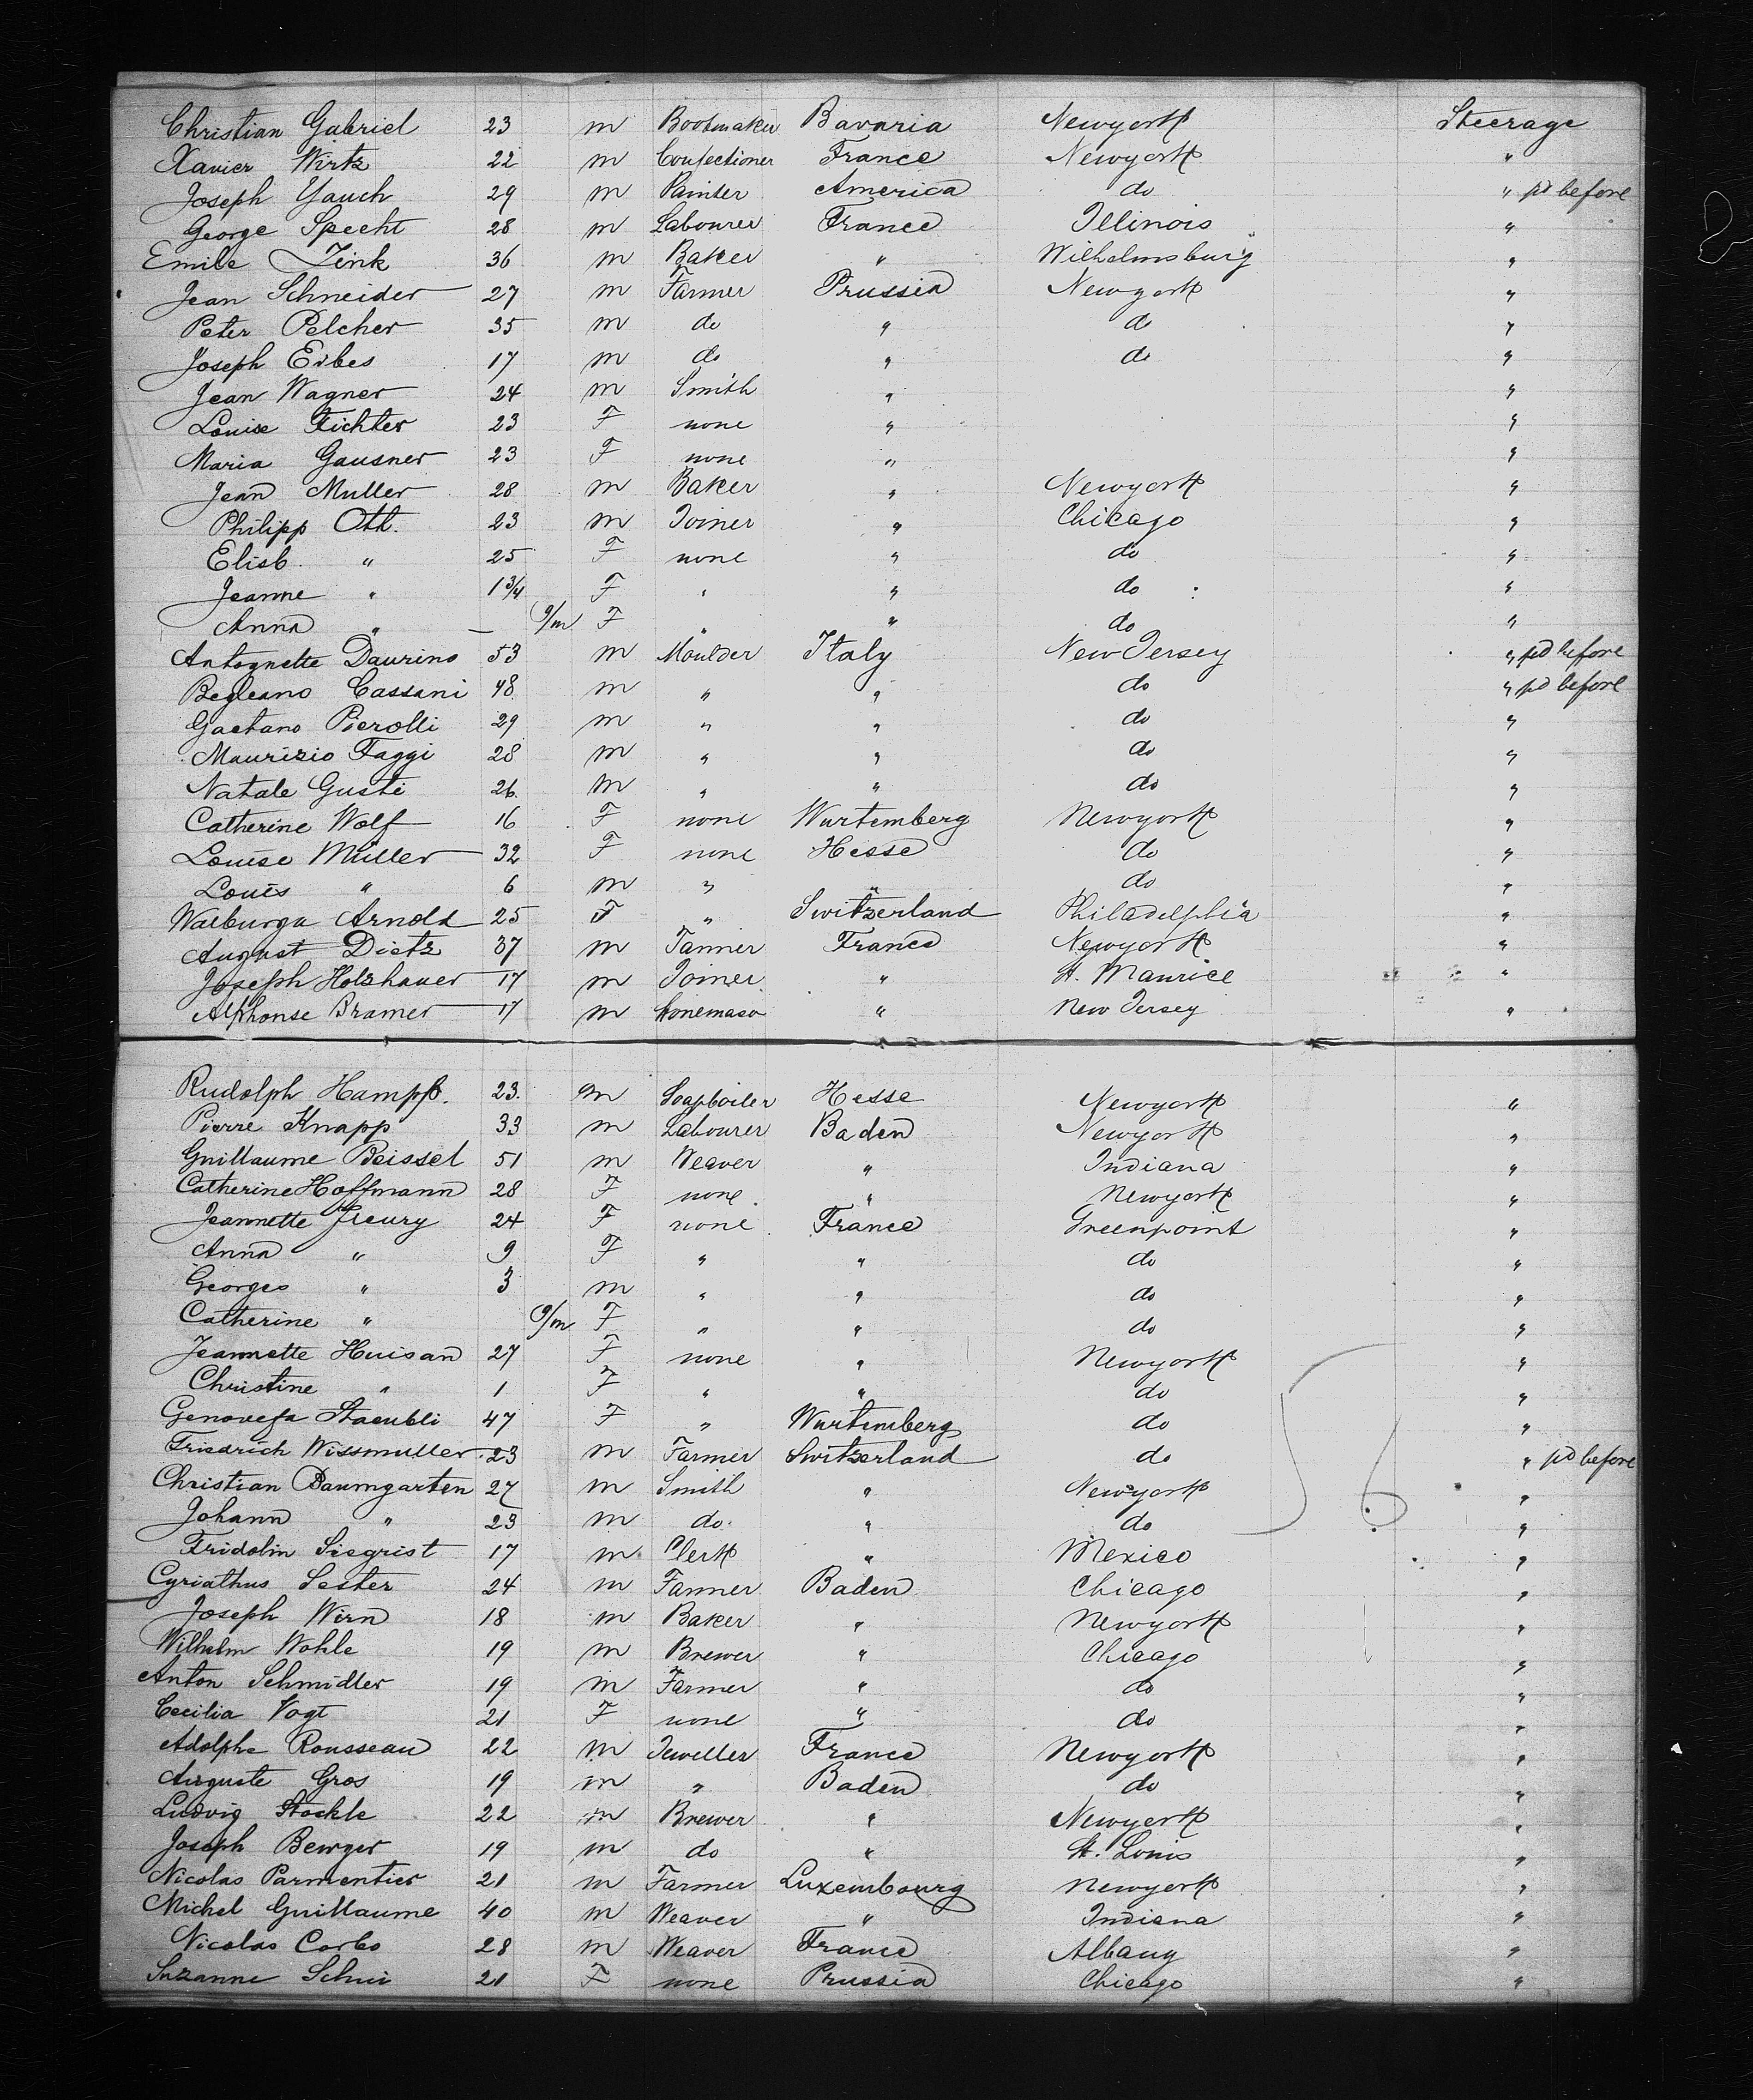 Christian Gabriel 23 m Bootmaker Bavaria Newyork Steerage
Xavier Wirtz 22 m Confectioner France Newyork "
Joseph Yauch 29 m Painter America do " pd before
George Specht 28 m Labourer France Illinois "
Emile Zink 36 m Baker " Wilhelmsburg "
Jean Schneider 27 m Farmer Prussia Newyork "
Peter Pelcher 35 m do " do "
Joseph Erbes 17 m do " do "
Jean Wagner 24 m Smith " "
Louise Fichter 23 F none " "
Maria Gausner 23 F none " "
Jean Muller 28 m Baker " Newyork "
Philipp Ott. 23 m Joiner " Chicago "
Elisb. " 25 F none " do "
Jeanne " 1 3/4 F " " do "
Anna " — 9/m F " " do "
Antognette Daurino 53 m Moulder Italy New Jersey " pd before
Begleano Cassani 48 m " " do " pd before
Gaetano Pierolli 29 m " " do "
Maurizio Faggi 28 m " " do "
Natale Gusti 26 m " " do "
Catherine Wolf 16 F none Wurtemberg Newyork "
Louise Müller 32 F none Hesse do "
Louis " 6 m " " do "
Walburga Arnold 25 F " Switzerland Philadelphia "
August Dietz 37 m Tanner France Newyork "
Joseph Holzhauer 17 m Joiner " St. Maurice "
Alphonse Bramer 17 m Stonemaso " New Jersey "
Rudolph Hampp. 23. m Soapboiler Hesse Newyork "
Pierre Knapp 33 m Labourer Baden Newyork "
Guillaume Beissel 51 m Weaver " Indiana "
Catherine Hoffmann 28 F none " Newyork "
Jeannette Fleury 24 F none France Greenpoint "
Anna " 9 F " " do "
Georges " 3 m " " do "
Catherine " 9/m F " " do "
Jeannette Huisan 27 F none " Newyork "
Christine " 1 F " " do "
Genovefa Staeubli 47 F " Wurtemberg do "
Friedrich Wissmuller 23 m Farmer Switzerland do " pd before
Christian Baumgarten 27 m Smith " Newyork "
Johann " 23 m do " do "
Fridolin Siegrist 17 m Clerk " Mexico "
Cyriathus Sester 24 m Farmer Baden Chicago "
Joseph Wirn 18 m Baker " Newyork "
Wilhelm Wohle 19 m Brewer " Chicago "
Anton Schmidler 19 m Farmer " do "
Cecilia Vogt 21 F none " do "
Adolphe Rousseau 22 m Jeweller France Newyork "
Auguste Gros 19 m " Baden do "
Ludvig Stockle 22 m Brewer " Newyork "
Joseph Bewger 19 m do " St. Louis "
Nicolas Parmentier 21 m Farmer Luxembourg Newyork "
Michel Guillaume 40 m Weaver " Indiana "
Nicolas Corbo 28 m Weaver France Albany "
Suzanne Schui 21 F none Prussia Chicago "